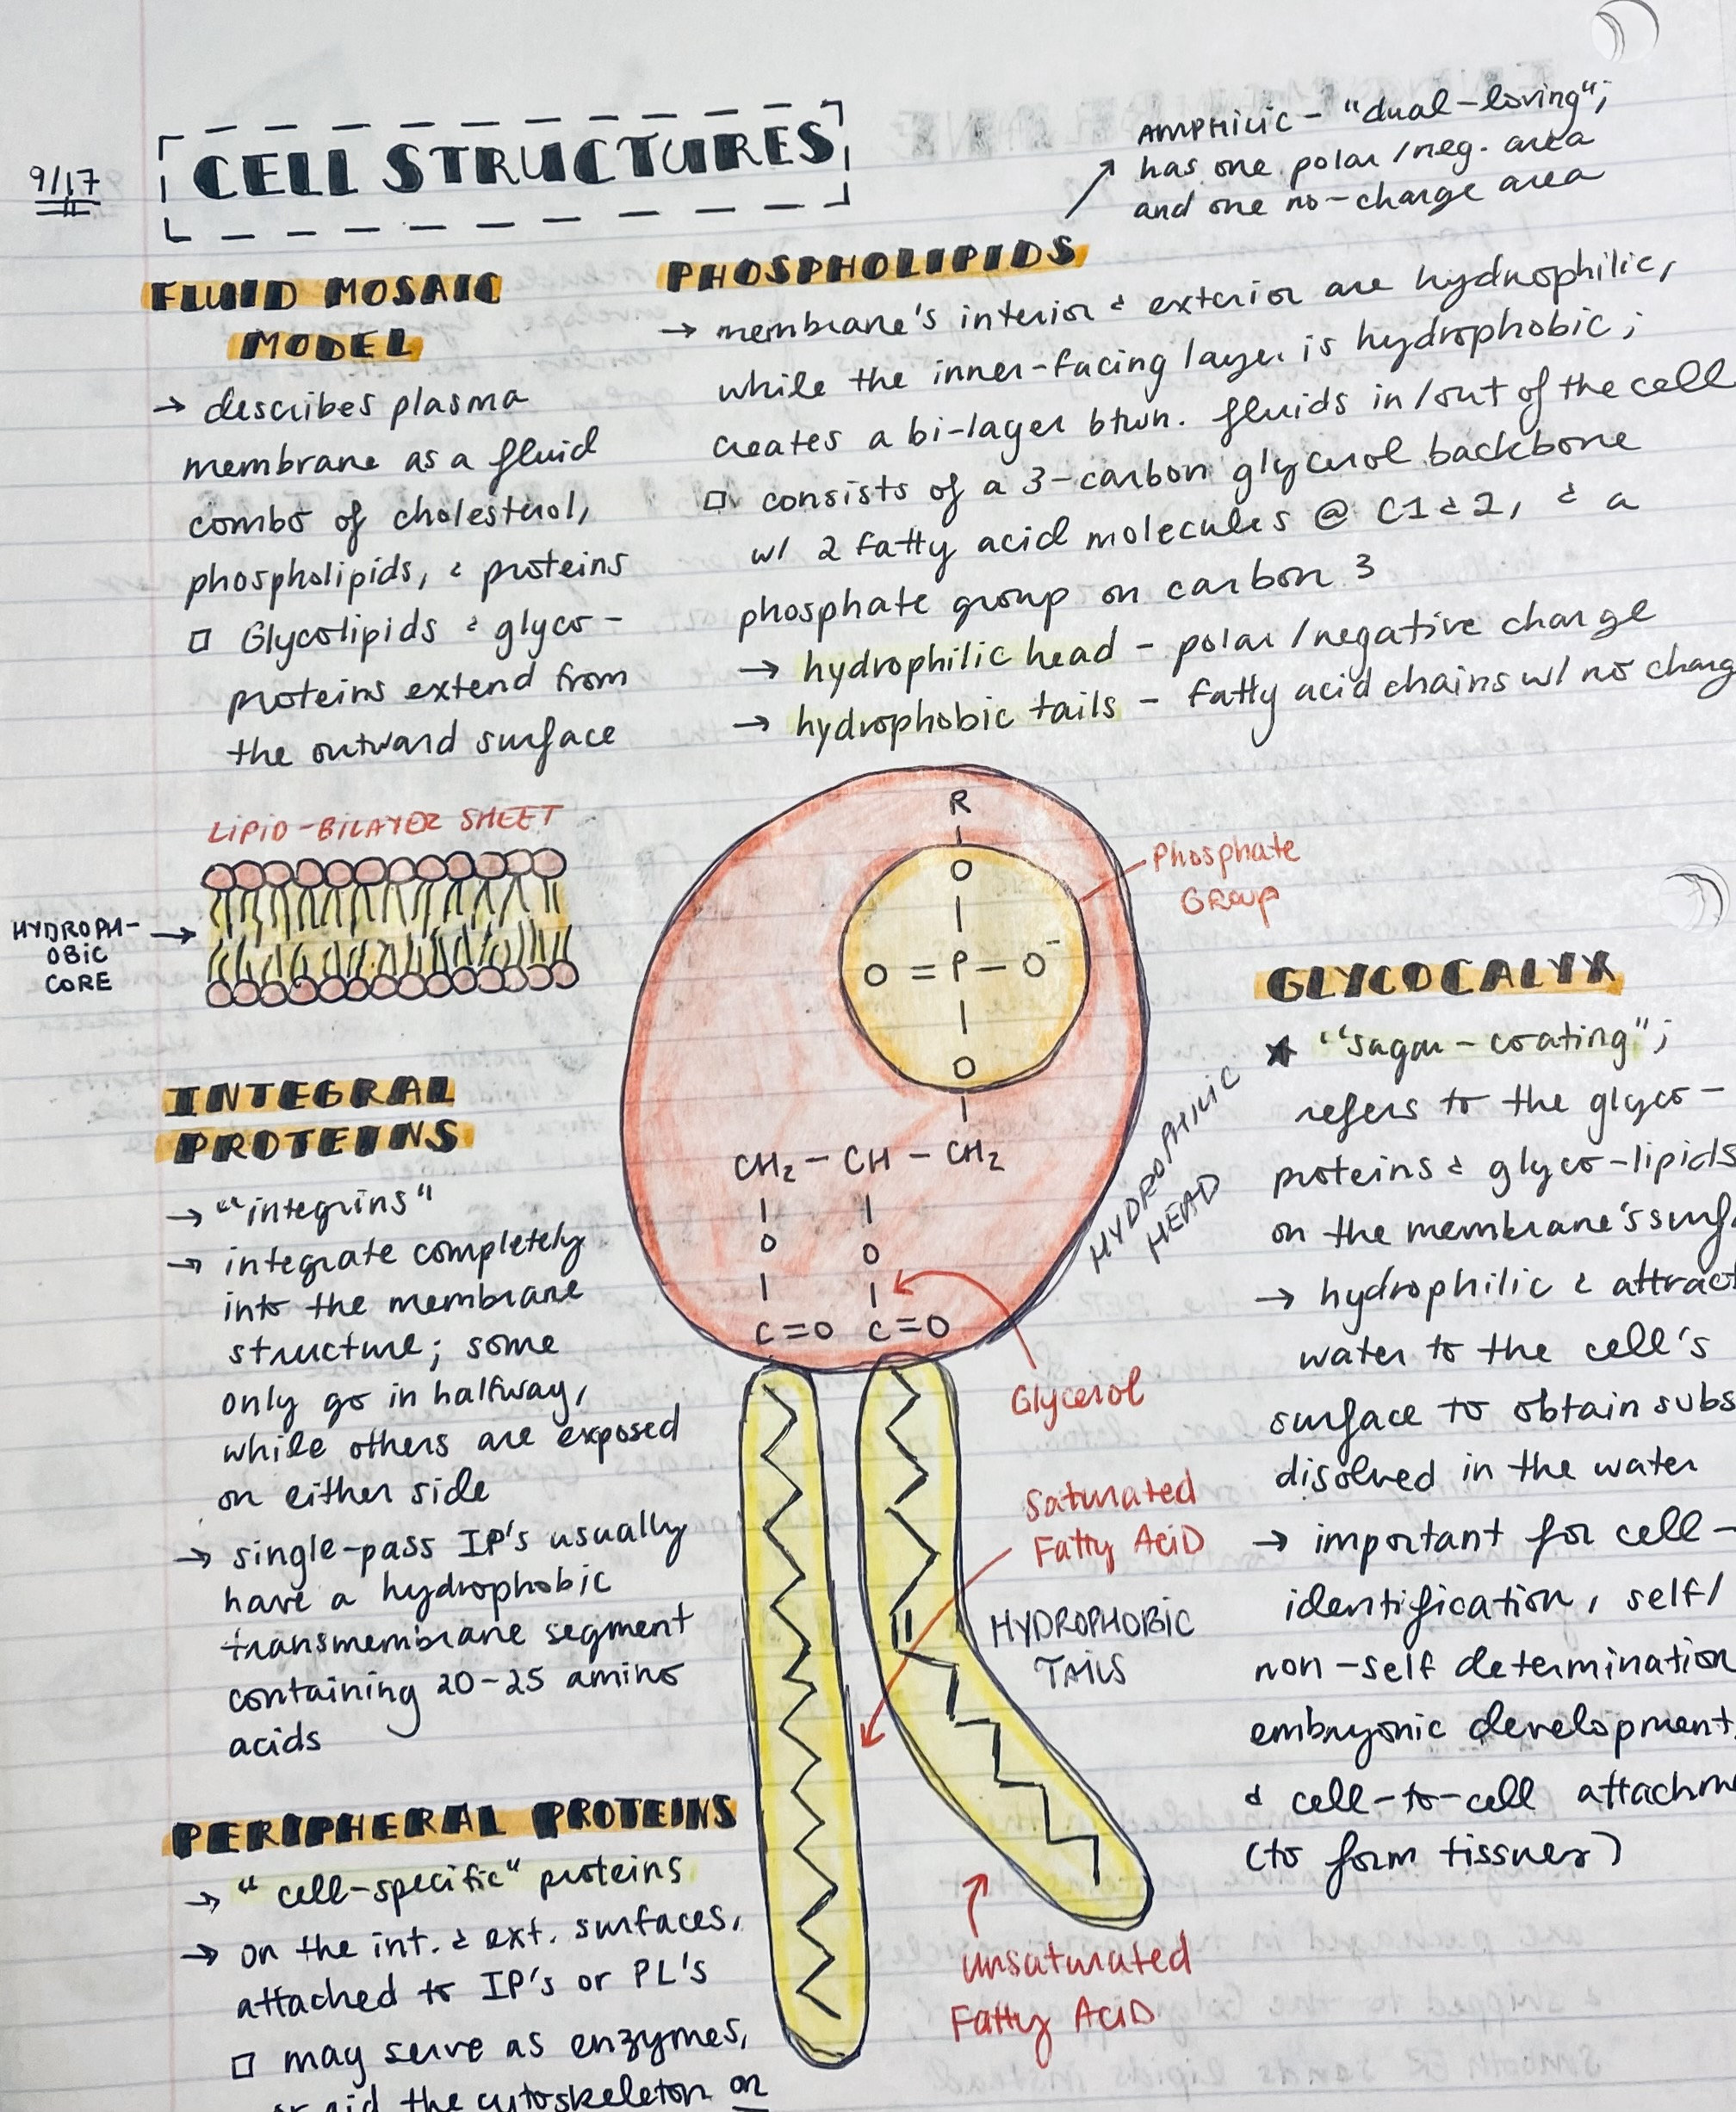 9/17
CELL STRUCTURES
AMPHILIC - "dual-loving";
has one polar/neg. area
and one no-charge area
FLUID MOSAIC
MODEL
→ describes plasma
membrane as a fluid
combo of cholesterol,
phospholipids, & proteins
□ Glycolipids & glyco-
proteins extend from
the outward surface
PHOSPHOLIPIDS
→ membrane's interior & exterior are hydrophilic,
while the inner-facing layer is hydrophobic;
creates a bi-layer btwn. fluids in/out of the cell
□ consists of a 3-carbon glycerol backbone
w/ 2 fatty acid molecules @ C1 & 2, & a
phosphate group on carbon 3
→ hydrophilic head - polar/negative charge
→ hydrophobic tails - fatty acid chains w/ no charg
LIPID-BILAYER SHEET
HYDROPH-
OBIC
CORE
R
O
O = P - O⁻
O
CH₂ - CH - CH₂
O O
C=O C=O
Phosphate
GROUP
HYDROPHILIC
HEAD
Glycerol
Saturated
Fatty Acid
HYDROPHOBIC
TAILS
Unsaturated
Fatty Acid
INTEGRAL
PROTEINS
→ "integrins"
→ integrate completely
into the membrane
structure; some
only go in halfway,
while others are exposed
on either side
→ single-pass IP's usually
have a hydrophobic
transmembrane segment
containing 20-25 amino
acids
PERIPHERAL PROTEINS
→ "cell-specific" proteins
→ on the int. & ext. surfaces,
attached to IP's or PL's
□ may serve as enzymes,
or aid the cytoskeleton on
GLYCOCALYX
★ "sugar-coating";
refers to the glyco-
proteins & glyco-lipids
on the membrane's surf
→ hydrophilic & attract
water to the cell's
surface to obtain subs
disolved in the water
→ important for cell-
identification, self/
non-self determination
embryonic development,
& cell-to-cell attachm
(to form tissues)